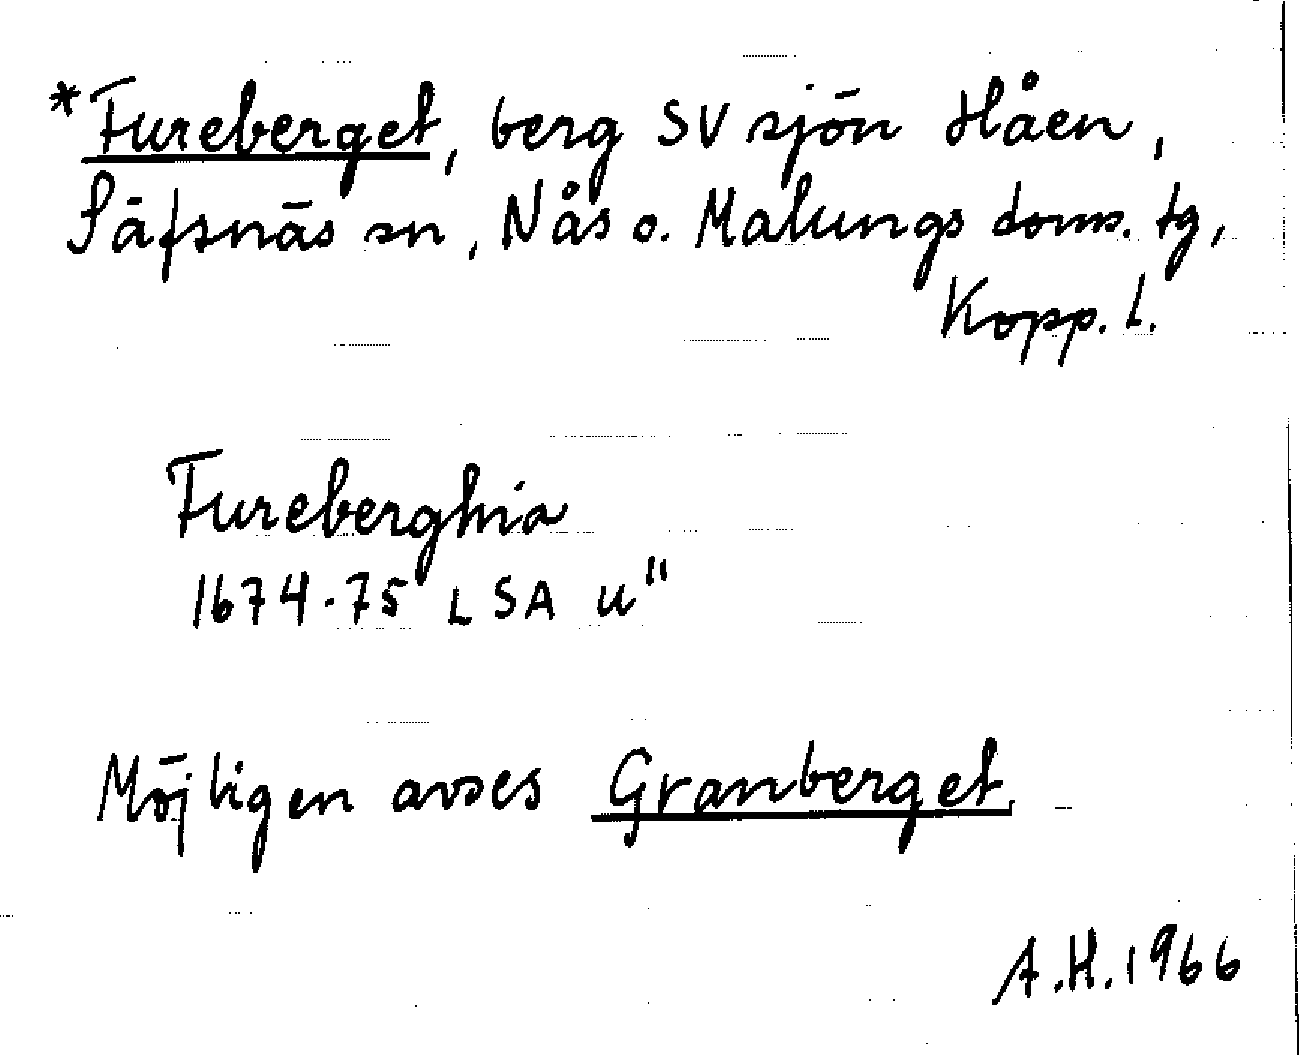 *Fureberget, berg SV sjön Håen,
Säfsnäs sn, Nås o. Malungs doms. tg,
Kopp. l.
Fureberghia
1674-75 LSA u"
Möjligen avses Granberget.
A.H. 1966